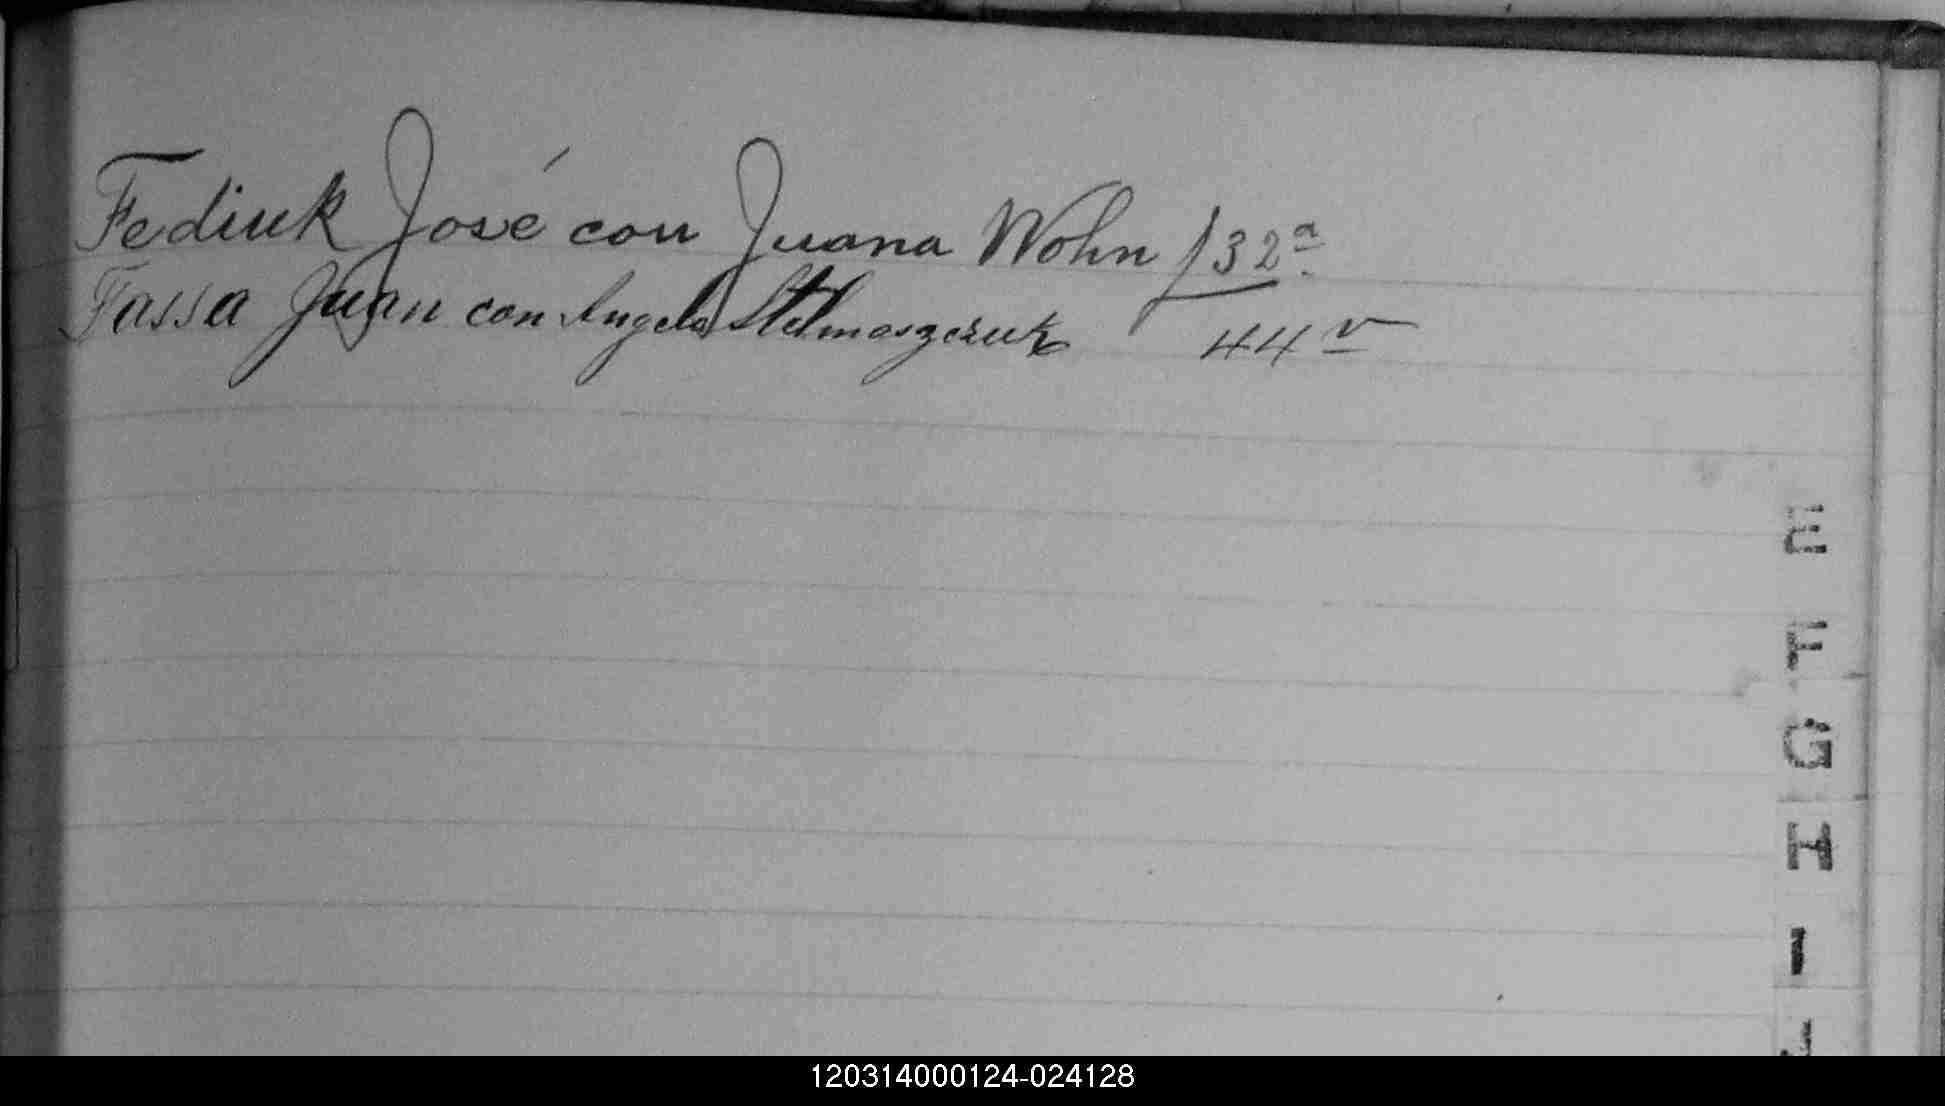 Fediuk José con Juana Wohn /32a
Fassa Juan con Angela Stelmaszczuk 44v
E
F
G
H
I
J
120314000124-024128